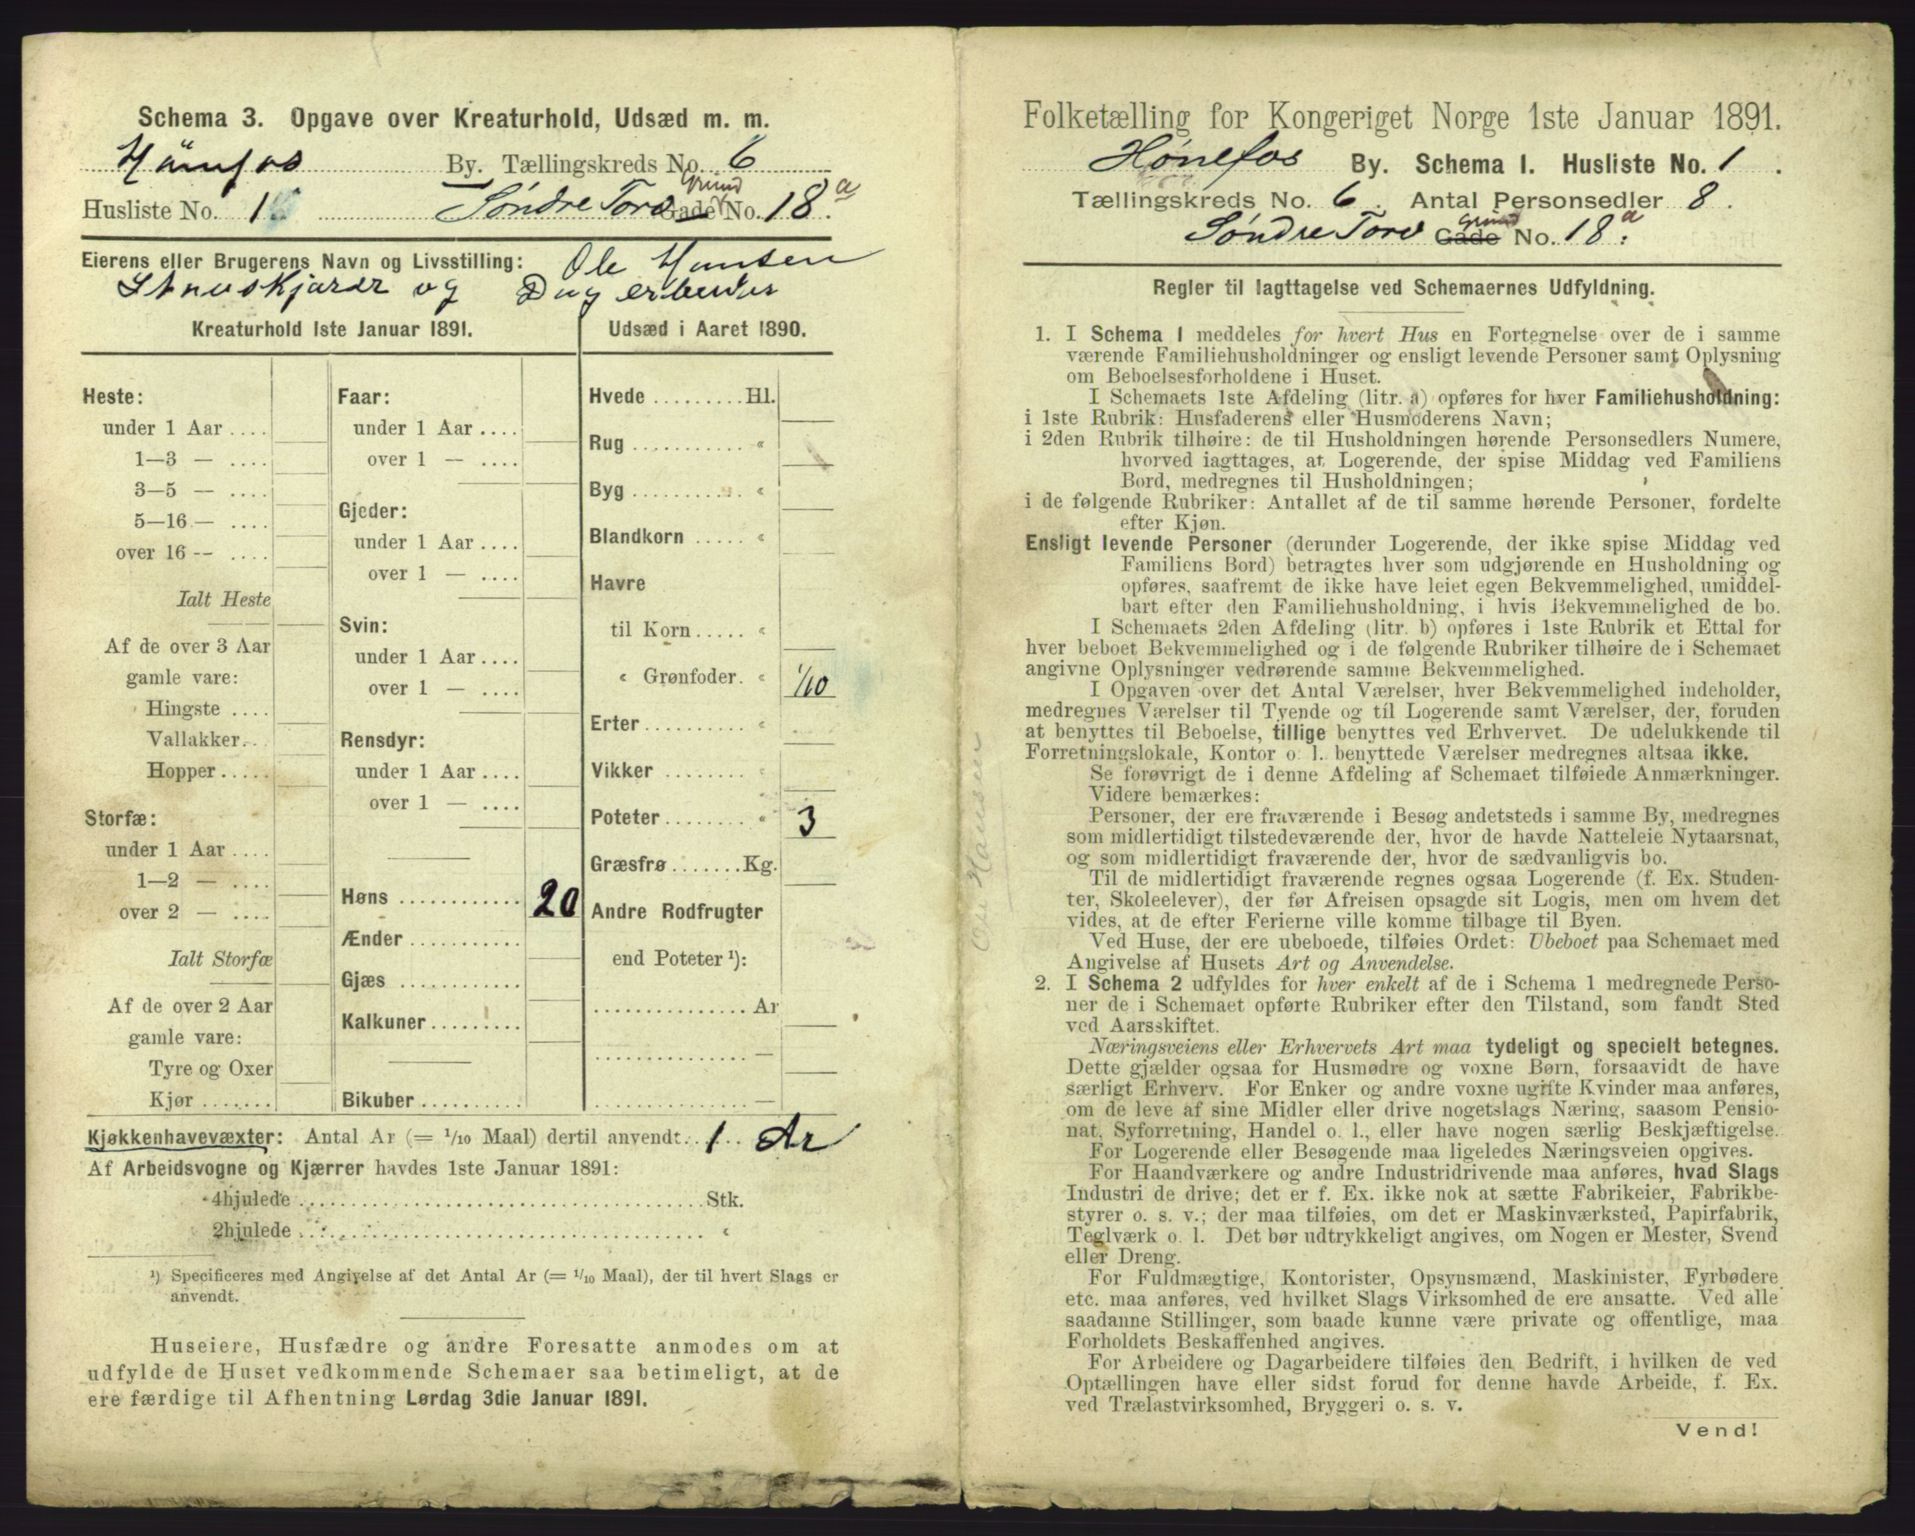 Schema 3. Opgave over Kreaturhold, Udsæd m. m.
Hönefos By. Tællingskreds No. 6
Grund
Husliste No. 1 Søndre Torv Gade No. 18 a
Eierens eller Brugerens Navn og Livsstilling: Ole Hansen
og Dagarbeider
Kreaturhold 1ste Januar 1891.
Heste:
under 1 Aar ....
1—3 — ....
3—5 — ....
5—16 — ....
over 16 — ....
Ialt Heste
Af de over 3 Aar
gamle vare:
Hingste ....
Vallakker..
Hopper .....
Storfæ:
under 1 Aar ....
1—2 — ....
over 2 — ....
Ialt Storfæ
Af de over 2 Aar
gamle vare:
Tyre og Oxer
Kjør .......
Faar:
under 1 Aar ....
over 1 — ....
Gjeder:
under 1 Aar ....
over 1 — ....
Svin:
under 1 Aar ....
over 1 — ....
Rensdyr:
under 1 Aar ....
over 1 — ....
Høns ............ 20
Ænder ...........
Gjæs ............
Kalkuner.........
Bikuber..........
Udsæd i Aaret 1890.
Hvede .........Hl.
Rug ........... «
Byg ........... «
Blandkorn ..... «
Havre
til Korn ..... «
« Grønfoder. « 1/10
Erter .......... «
Vikker ......... «
Poteter ........ « 3
Græsfrø .......Kg.
Andre Rodfrugter
end Poteter ¹):
............... Ar
............... —
............... —
Kjøkkenhavevæxter: Antal Ar (= 1/10 Maal) dertil anvendt. 1 Ar
Af Arbeidsvogne og Kjærrer havdes 1ste Januar 1891:
4hjulede ........................................ Stk.
2hjulede ........................................ «
¹) Specificeres med Angivelse af det Antal Ar (= 1/10 Maal), der til hvert Slags er
anvendt.
Huseiere, Husfædre og andre Foresatte anmodes om at
udfylde de Huset vedkommende Schemaer saa betimeligt, at de
ere færdige til Afhentning Lørdag 3die Januar 1891.
Ole Hansen
Folketælling for Kongeriget Norge 1ste Januar 1891.
Hønefos By. Schema I. Husliste No. 1.
Tællingskreds No. 6. Antal Personsedler 8.
Grund
Søndre Torv Gade No. 18 a.
Regler til Iagttagelse ved Schemaernes Udfyldning.
1. I Schema 1 meddeles for hvert Hus en Fortegnelse over de i samme
værende Familiehusholdninger og ensligt levende Personer samt Oplysning
om Beboelsesforholdene i Huset.
I Schemaets 1ste Afdeling (litr. a) opføres for hver Familiehusholdning:
i 1ste Rubrik: Husfaderens eller Husmoderens Navn;
i 2den Rubrik tilhøire: de til Husholdningen hørende Personsedlers Numere,
hvorved iagttages, at Logerende, der spise Middag ved Familiens
Bord, medregnes til Husholdningen;
i de følgende Rubriker: Antallet af de til samme hørende Personer, fordelte
efter Kjøn.
Ensligt levende Personer (derunder Logerende, der ikke spise Middag ved
Familiens Bord) betragtes hver som udgjørende en Husholdning og
opføres, saafremt de ikke have leiet egen Bekvemmelighed, umiddel-
bart efter den Familiehusholdning, i hvis Bekvemmelighed de bo.
I Schemaets 2den Afdeling (litr. b) opføres i 1ste Rubrik et Ettal for
hver beboet Bekvemmelighed og i de følgende Rubriker tilhøire de i Schemaet
angivne Oplysninger vedrørende samme Bekvemmelighed.
I Opgaven over det Antal Værelser, hver Bekvemmelighed indeholder,
medregnes Værelser til Tyende og til Logerende samt Værelser, der, foruden
at benyttes til Beboelse, tillige benyttes ved Erhvervet. De udelukkende til
Forretningslokale, Kontor o. l. benyttede Værelser medregnes altsaa ikke.
Se forøvrigt de i denne Afdeling af Schemaet tilføiede Anmærkninger.
Videre bemærkes:
Personer, der ere fraværende i Besøg andetsteds i samme By, medregnes
som midlertidigt tilstedeværende der, hvor de havde Natteleie Nytaarsnat,
og som midlertidigt fraværende der, hvor de sædvanligvis bo.
Til de midlertidigt fraværende regnes ogsaa Logerende (f. Ex. Studen-
ter, Skoleelever), der før Afreisen opsagde sit Logis, men om hvem det
vides, at de efter Ferierne ville komme tilbage til Byen.
Ved Huse, der ere ubeboede, tilføies Ordet: Ubeboet paa Schemaet med
Angivelse af Husets Art og Anvendelse.
2. I Schema 2 udfyldes for hver enkelt af de i Schema 1 medregnede Perso-
ner de i Schemaet opførte Rubriker efter den Tilstand, som fandt Sted
ved Aarsskiftet.
Næringsveiens eller Erhvervets Art maa tydeligt og specielt betegnes.
Dette gjælder ogsaa for Husmødre og voxne Børn, forsaavidt de have
særligt Erhverv. For Enker og andre voxne ugifte Kvinder maa anføres,
om de leve af sine Midler eller drive nogetslags Næring, saasom Pensio-
nat, Syforretning, Handel o. l., eller have nogen særlig Beskjæftigelse.
For Logerende eller Besøgende maa ligeledes Næringsveien opgives.
For Haandværkere og andre Industridrivende maa anføres, hvad Slags
Industri de drive; det er f. Ex. ikke nok at sætte Fabrikeier, Fabrikbe-
styrer o. s. v.; der maa tilføies, om det er Maskinværksted, Papirfabrik,
Teglværk o. l. Det bør udtrykkeligt angives, om Nogen er Mester, Svend
eller Dreng.
For Fuldmægtige, Kontorister, Opsynsmænd, Maskinister, Fyrbødere
etc. maa anføres, ved hvilket Slags Virksomhed de ere ansatte. Ved alle
saadanne Stillinger, som baade kunne være private og offentlige, maa
Forholdets Beskaffenhed angives.
For Arbeidere og Dagarbeidere tilføies den Bedrift, i hvilken de ved
Optællingen have eller sidst forud for denne havde Arbeide, f. Ex.
ved Trælastvirksomhed, Bryggeri o. s. v.
Vend!